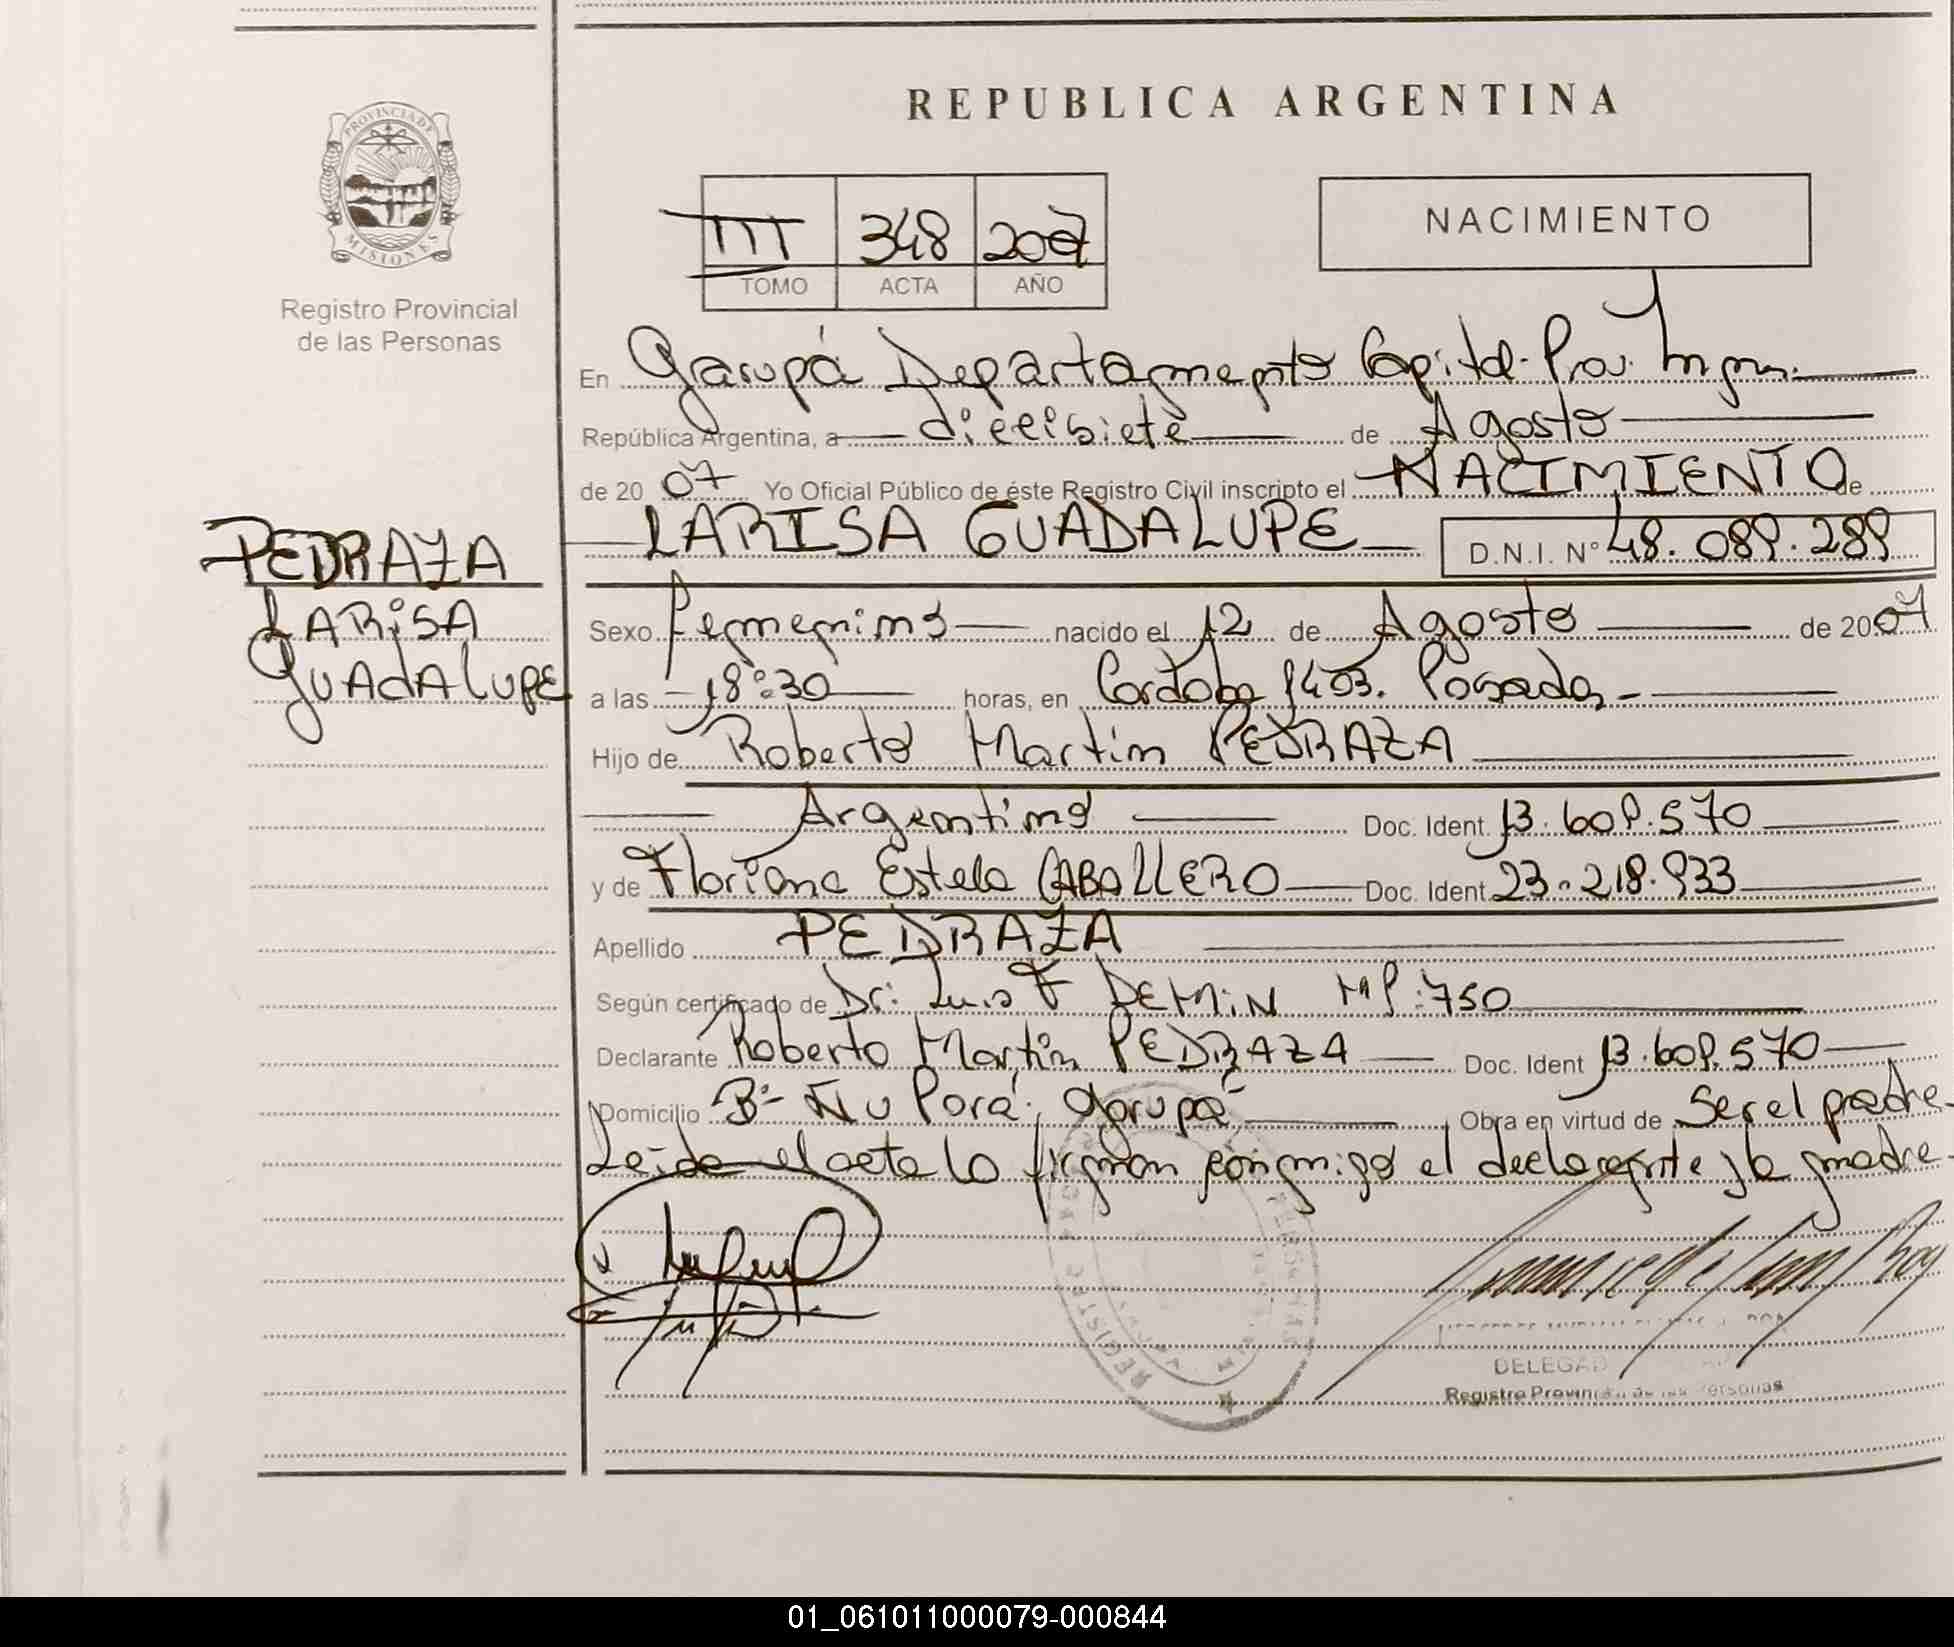 REPUBLICA ARGENTINA
PROVINCIA DE
MISIONES
Registro Provincial
de las Personas
III 348 2007
TOMO ACTA AÑO
NACIMIENTO
En Garupá Departamento Capital. Prov. Mnes.
República Argentina, a diecisiete de Agosto
de 20 07 Yo Oficial Público de éste Registro Civil inscripto el NACIMIENTO de
LARISA GUADALUPE D.N.I. Nº 48.089.289
PEDRAZA
LARiSA
GUAdALUPE
Sexo femenino nacido el 12 de Agosto de 20 07
a las 18:30 horas, en Cordoba 1403. Posadas
Hijo de Roberto Martin PEDRAZA
Argentino Doc. Ident. 13.609.570
y de Floriana Estela CABALLERO Doc. Ident. 23.218.933
Apellido PEDRAZA
Según certificado de Dr: Luis F DEMiN MP:750
Declarante Roberto Martin PEDRAZA Doc. Ident 13.609.570
Domicilio Bº Ñu Porá, Garupá Obra en virtud de Ser el padre
Leida el acta la firman conmigo el declarante y la madre
DELEGAD
Registro Provincial de las Personas
REGISTRO
01_061011000079-000844